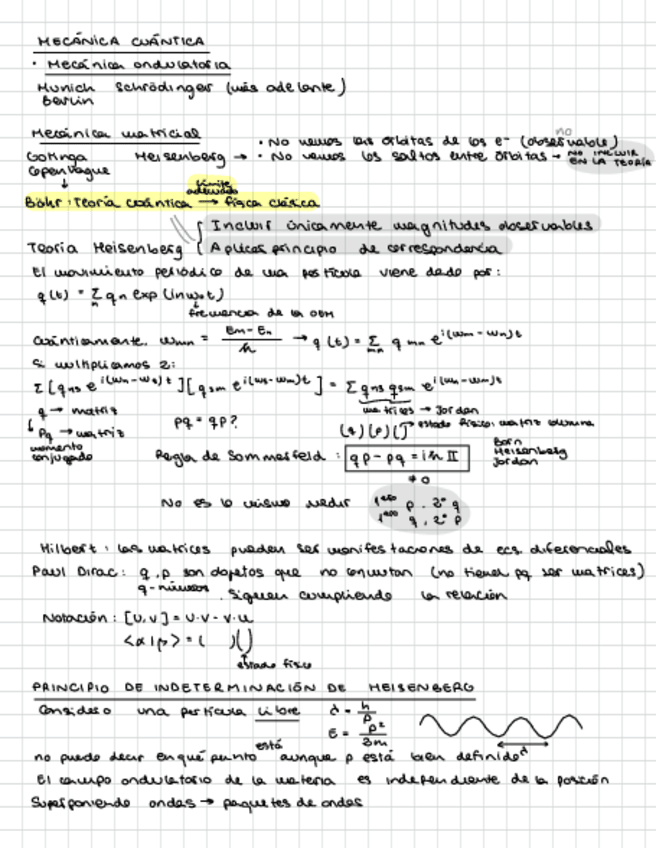 MECÁNICA CUÁNTICA
· Mecánica ondulatoria
Munich Schrödinger (más adelante)
Berlín
Mecánica matricial · No vemos las órbitas de los e- (no observable)
Gotinga Heisenberg → · No vemos los saltos entre órbitas → NO INCLUIR EN LA TEORÍA
Copenhague
↓ límite adecuado
Bohr: Teoría cuántica → física clásica
{ Incluir únicamente magnitudes observables
Teoría Heisenberg { Aplicar principio de correspondencia
El movimiento periódico de una partícula viene dado por:
q(t) = Σ qn exp (inω0t)
frecuencia de la
Cuánticamente. ωmn = Em-En / ħ → q(t) = Σmn qmn e^i(ωm-ωn)t
Si multiplicamos 2:
Σ [qns e^i(ωn-ωs)t][qsm e^i(ωs-ωm)t] = Σ qns qsm e^i(ωn-ωm)t
q → matriz matrices → Jordan
pq = qp? ( )( )( ) → estado físico: matriz columna
↳ Pq → matriz
momento conjugado
Regla de Sommerfeld: qp - pq = iħ II Born Heisenberg Jordan
≠ 0
No es lo mismo medir 1ero p, 2º q
1ero q, 2º p
Hilbert: las matrices pueden ser manifestaciones de ecs. diferenciales
Paul Dirac: q, p son objetos que no conmutan (no tienen pq ser matrices)
q-números. Siguen cumpliendo la relación
Notación: [u,v] = u·v - v·u
<α|β> = ( )( )
estado físico
PRINCIPIO DE INDETERMINACIÓN DE HEISENBERG
Considero una partícula libre λ = h/p
E = p²/2m
está λ
no puedo decir en qué punto aunque p está bien definido
El campo ondulatorio de la materia es independiente de la posición
Superponiendo ondas → paquetes de ondas